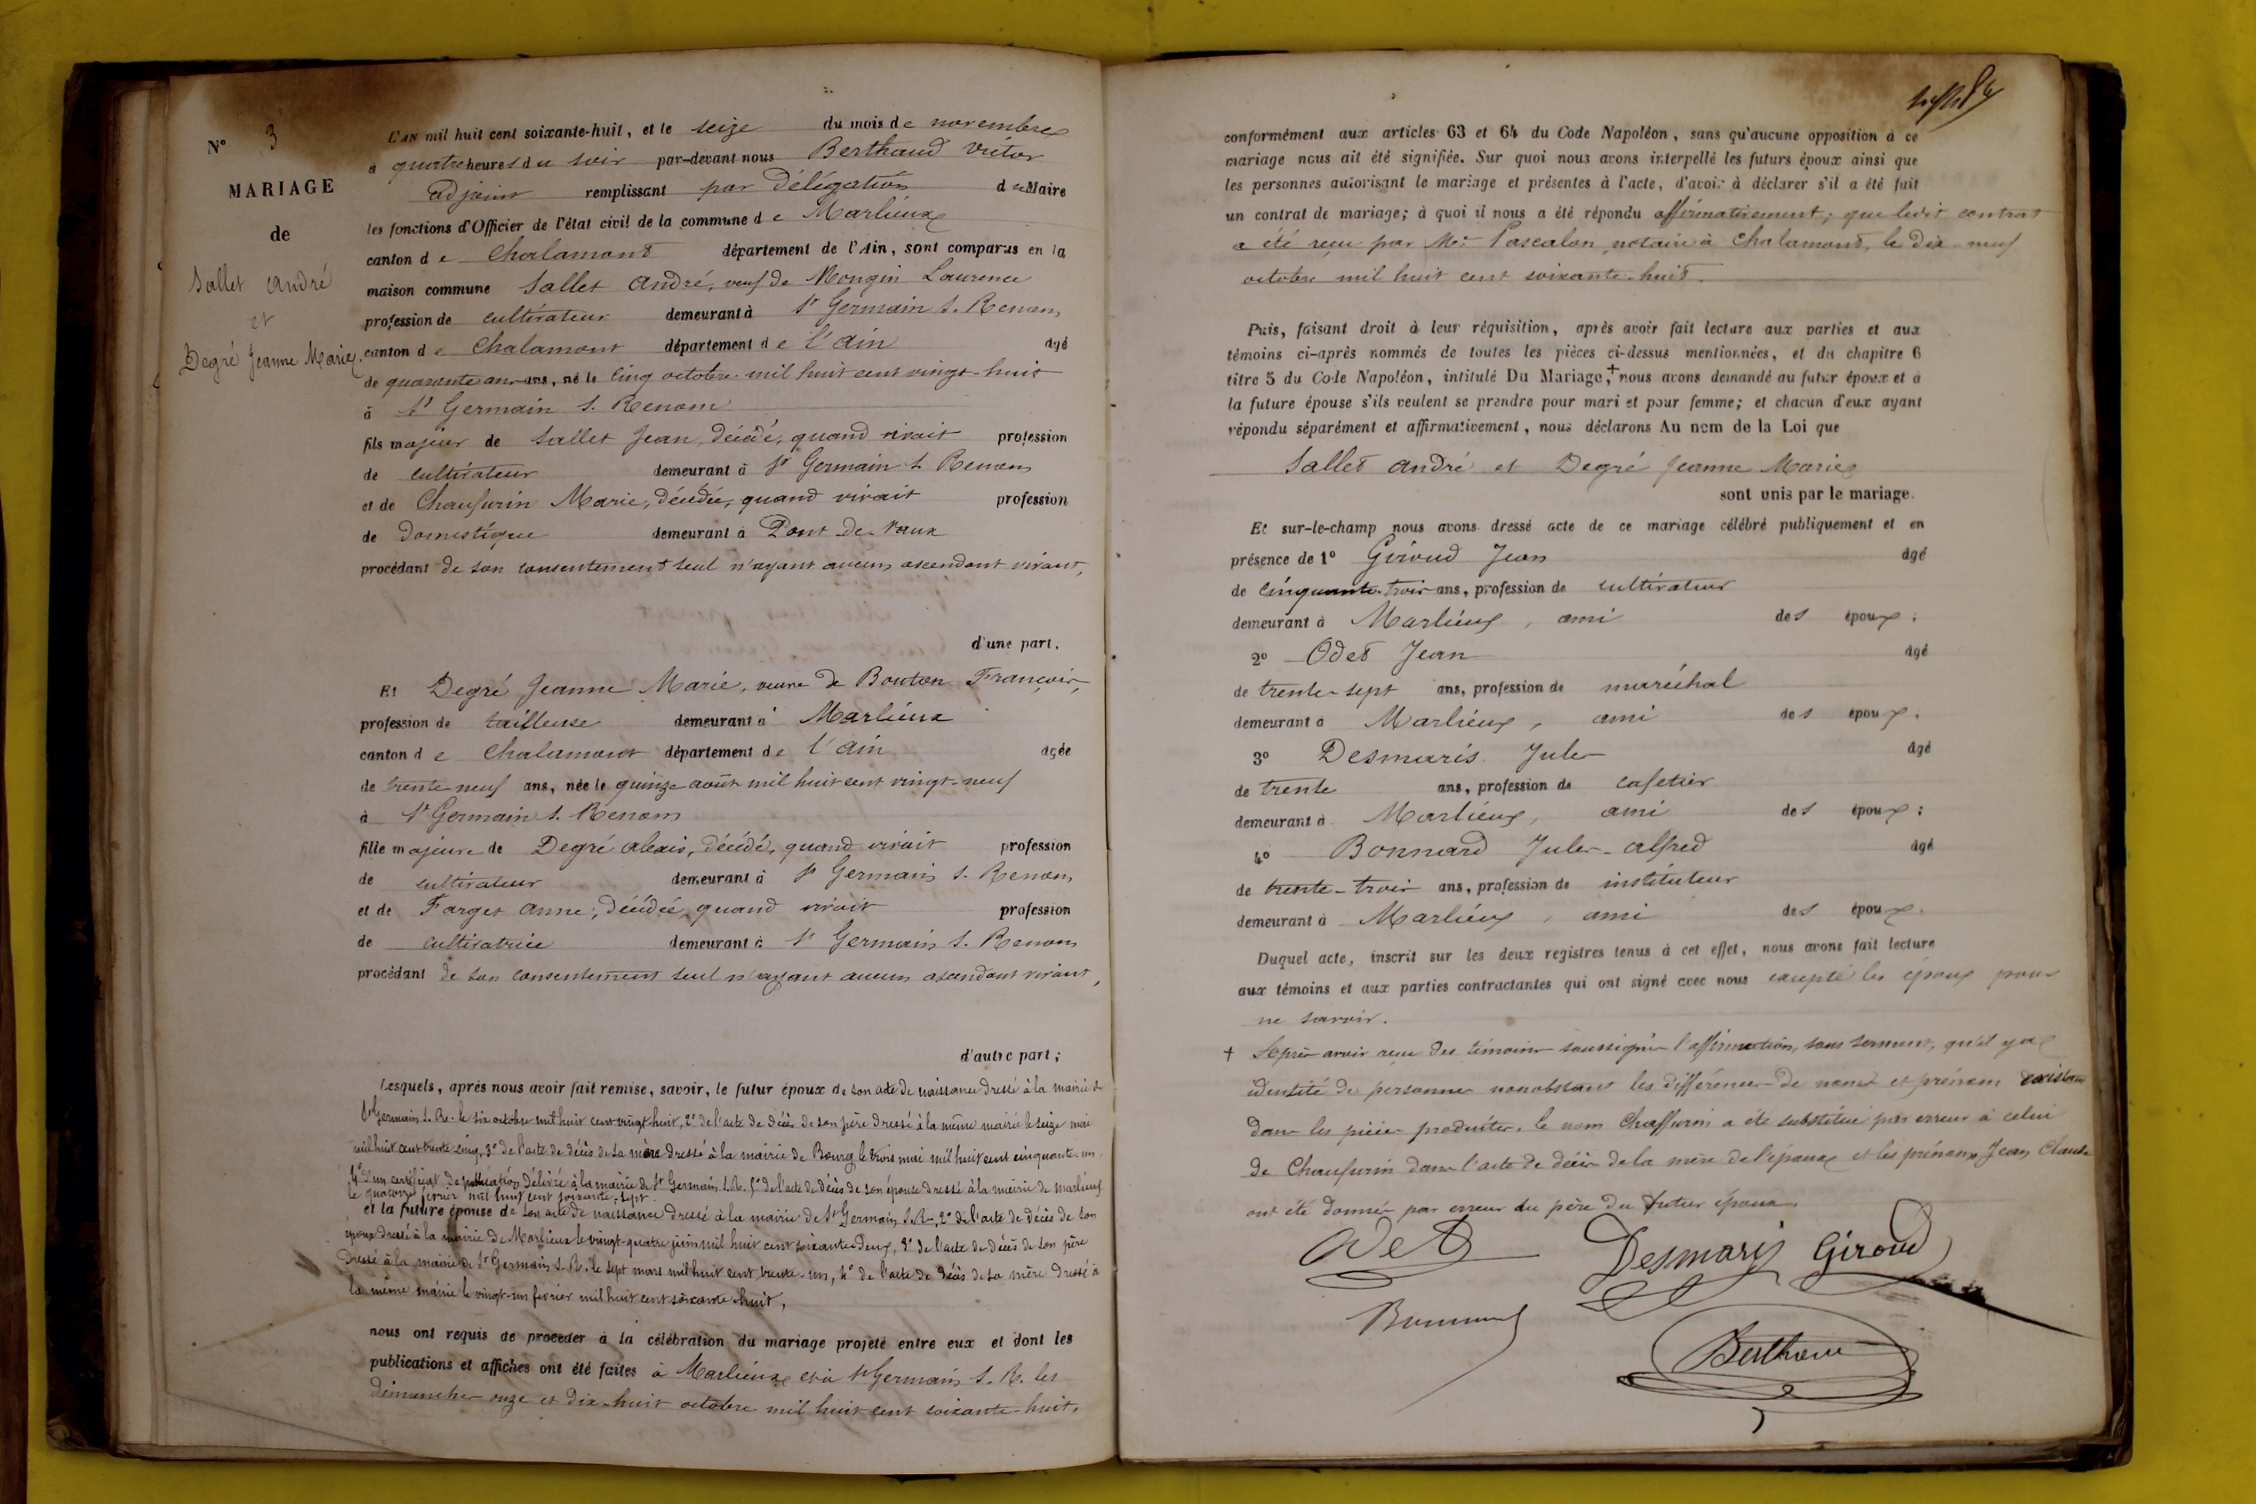 N° 3
MARIAGE
de
Sallet André
et
Degré Jeanne Marie.
L'AN mil huit cent soixante-huit, et le seize du mois de novembre
à quatre heures du soir par-devant nous Berthaud Victor
adjoint remplissant par délégation du Maire
les fonctions d'Officier de l'état civil de la commune de Marlieux
canton de Chalamont département de l'Ain, sont comparus en la
maison commune Sallet André, veuf de Mongin Laurence
profession de cultivateur demeurant à St Germain s. Renom,
canton de Chalamont département de l'Ain âgé
de quarante ans, né le cinq octobre mil huit cent vingt-huit
à St Germain s. Renom
fils majeur de Sallet Jean, décédé, quand vivait profession
de cultivateur demeurant à St Germain s. Renom
et de Chaufurin Marie, décédée, quand vivait profession
de domestique demeurant à Pont-de-Vaux
procédant de son consentement seul n'ayant aucun ascendant vivant,
d'une part.
Et Degré Jeanne Marie, veuve de Bouton François,
profession de tailleuse demeurant à Marlieux
canton de Chalamont département de l'Ain âgée
de trente-neuf ans, née le quinze août mil huit cent vingt-neuf
à St Germain s. Renom
fille majeure de Degré Alexis, décédé, quand vivait profession
de cultivateur demeurant à St Germain s. Renom,
et de Farget Anne, décédée, quand vivait profession
de cultivatrice demeurant à St Germain s. Renom
procédant de son consentement seul n'ayant aucun ascendant vivant,
d'autre part;
Lesquels, après nous avoir fait remise, savoir, le futur époux de son acte de naissance dressé à la mairie de
St Germain s. Re. le six octobre mil huit cent vingt huit, 2° de l'acte de décès de son père dressé à la même mairie le seize mai
mil huit cent trente cinq, 3° de l'acte de décès de sa mère dressé à la mairie de Bourg le trois mai mil huit cent cinquante-un
4° d'un certificat de publication délivré à la mairie de St Germain s.R. 5° de l'acte de décès de son épouse dressé à la mairie de Marlieux
le quatorze février mil huit cent soixante-sept
et la future épouse de son acte de naissance dressé à la mairie de St Germain s.R., 2° de l'acte de décès de son
époux dressé à la mairie de Marlieux le vingt-quatre juin mil huit cent soixante-deux, 3° de l'acte de décès de son père
dressé à la mairie de St Germain s. R. le sept mars mil huit cent trente-un, 4° de l'acte de décès de sa mère dressé à
la même mairie le vingt-un février mil huit cent soixante-huit,
nous ont requis de procéder à la célébration du mariage projeté entre eux et dont les
publications et affiches ont été faites à Marlieux et à St Germain s. R. les
dimanches onze et dix-huit octobre mil huit cent soixante-huit,
conformément aux articles 63 et 64 du Code Napoléon, sans qu'aucune opposition à ce
mariage nous ait été signifiée. Sur quoi nous avons interpellé les futurs époux ainsi que
les personnes autorisant le mariage et présentes à l'acte, d'avoir à déclarer s'il a été fait
un contrat de mariage; à quoi il nous a été répondu affirmativement; que ledit contrat
a été reçu par Me Pascalon, notaire à Chalamont, le dix-neuf
octobre mil huit cent soixante-huit.
Puis, faisant droit à leur réquisition, après avoir fait lecture aux parties et aux
témoins ci-après nommés de toutes les pièces ci-dessus mentionnées, et du chapitre 6
titre 5 du Code Napoléon, intitulé Du Mariage,+ nous avons demandé au futur époux et à
la future épouse s'ils veulent se prendre pour mari et pour femme; et chacun d'eux ayant
répondu séparément et affirmativement, nous déclarons Au nom de la Loi que
Sallet André et Degré Jeanne Marie
sont unis par le mariage.
Et sur-le-champ nous avons dressé acte de ce mariage célébré publiquement et en
présence de 1° Giroud Jean âgé
de cinquante-trois ans, profession de cultivateur
demeurant à Marlieux, ami des époux;
2° Odet Jean âgé
de trente-sept ans, profession de maréchal
demeurant à Marlieux, ami des époux.
3° Desmaris Jules âgé
de trente ans, profession de cafetier
demeurant à Marlieux, ami des époux;
4° Bonnard Jules-Alfred âgé
de trente-trois ans, profession de instituteur
demeurant à Marlieux, ami des époux.
Duquel acte, inscrit sur les deux registres tenus à cet effet, nous avons fait lecture
aux témoins et aux parties contractantes qui ont signé avec nous excepté les époux pour
ne savoir.
+ Après avoir reçu des témoins soussignés l'affirmation, sans serment, qu'il y a
identité de personnes nonobstant les différences de noms et prénoms existant
dans les pièces produites. le nom Chaffurin a été substitué par erreur à celui
de Chaufurin dans l'acte de décès de la mère de l'époux et les prénoms Jean Claude
ont été donnés par erreur au père du futur époux.
Odet Desmaris Giroud
Bonnard
Berthaud